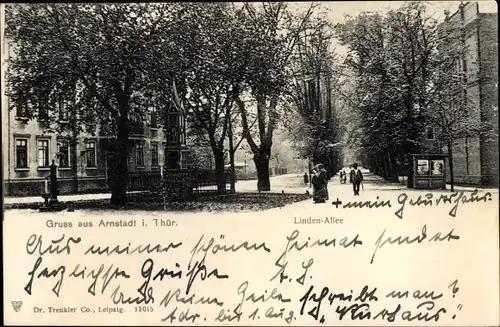 Gruss aus Arnstadt i. Thür.
Linden-Allee
+ mein Geburtshaus
Aus meiner schönen Heimat sendet
herzlichste Grüße A. H.
Und Keine Zeile schreibt man?
Adr. bis 1. Aug. "Kurhaus"
Dr. Trenkler Co., Leipzig. 12015